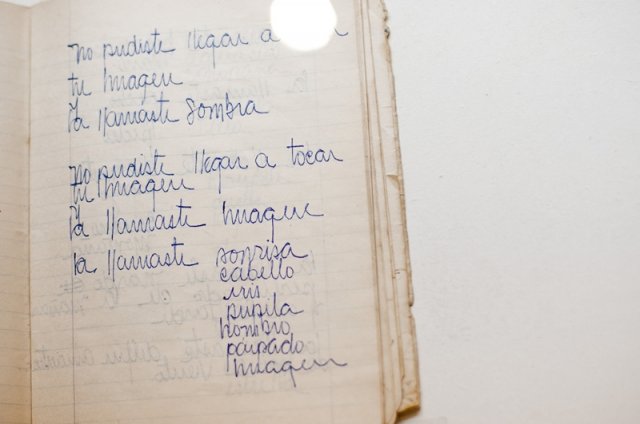 no pudiste llegar a
tu imagen
la llamaste sombra
no pudiste llegar a tocar
tu imagen
la llamaste imagen
la llamaste sonrisa
cabello
iris
pupila
hombro
parpado
imagen